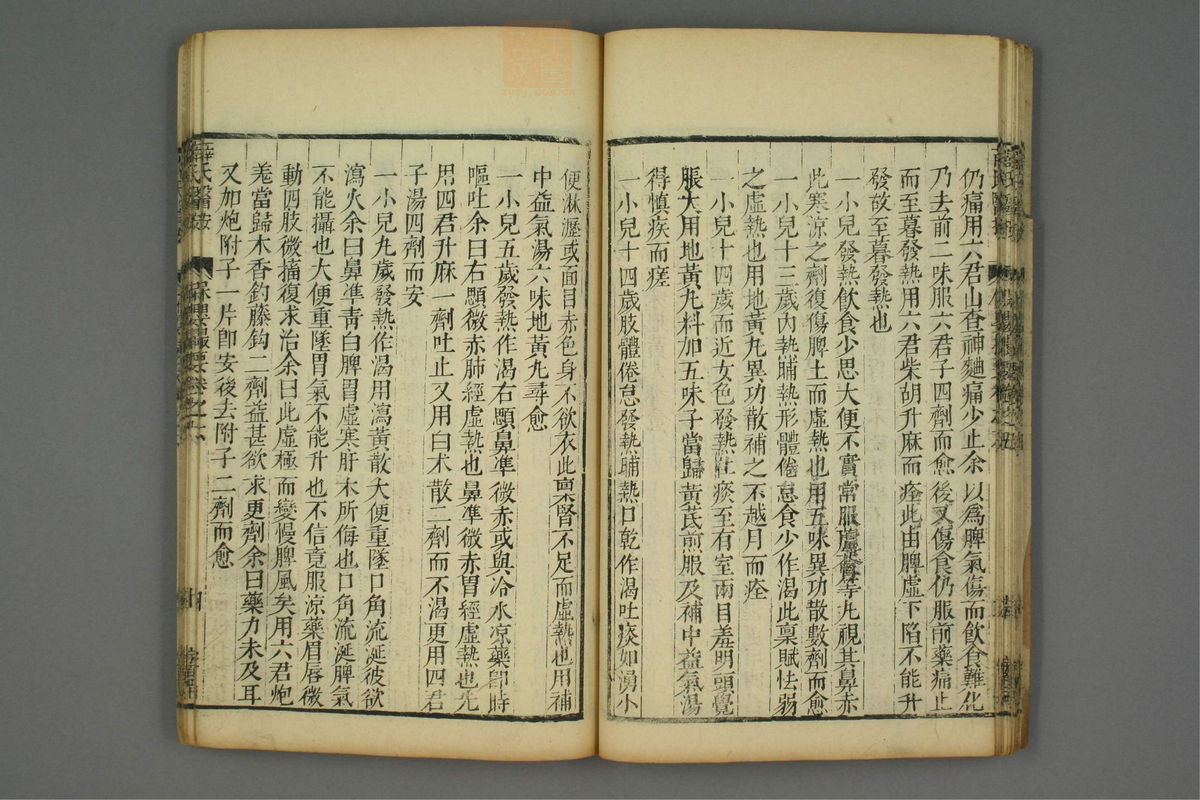 仍痛用六君山查神麯痛少止余以為脾氣傷而飲食難化
乃去前二味服六君子四劑而愈後又傷食仍服前藥痛止
而至暮發熱用六君柴胡升麻而痊此由脾虛下陷不能升
發故至暮發熱也
一小兒發熱飲食少思大便不實常服蘆薈等丸視其鼻赤
此寒涼之劑復傷脾土而虛熱也用五味異功散數劑而愈
一小兒十三歲內熱晡熱形體倦怠食少作渴此稟賦怯弱
之虛熱也用地黃丸異功散補之不越月而痊
一小兒十四歲而近女色發熱吐痰至有室兩目羞明頭覺
脹大用地黃丸料加五味子當歸黃芪煎服及補中益氣湯
得慎疾而瘥
一小兒十四歲肢體倦怠發熱晡熱口乾作渴吐痰如湧小
便淋瀝或面目赤色身不欲衣此稟腎不足而虛熱也用補
中益氣湯六味地黃丸尋愈
一小兒五歲發熱作渴右顋鼻準微赤或與冷水涼藥即時
嘔吐余曰右顋微赤肺經虛熱也鼻準微赤胃經虛熱也先
用四君升麻一劑吐止又用白朮散二劑而不渴更用四君
子湯四劑而安
一小兒九歲發熱作渴用瀉黃散大便重墜口角流涎彼欲
瀉火余曰鼻準青白脾胃虛寒肝木所侮也口角流涎脾氣
不能攝也大便重墜胃氣不能升也不信竟服涼藥眉唇微
動四肢微搐復求治余曰此虛極而變慢脾風矣用六君炮
羌當歸木香釣藤鈎二劑益甚欲求更劑余曰藥力未及耳
又加炮附子一片即安後去附子二劑而愈
薛氏醫按
保嬰撮要卷之六